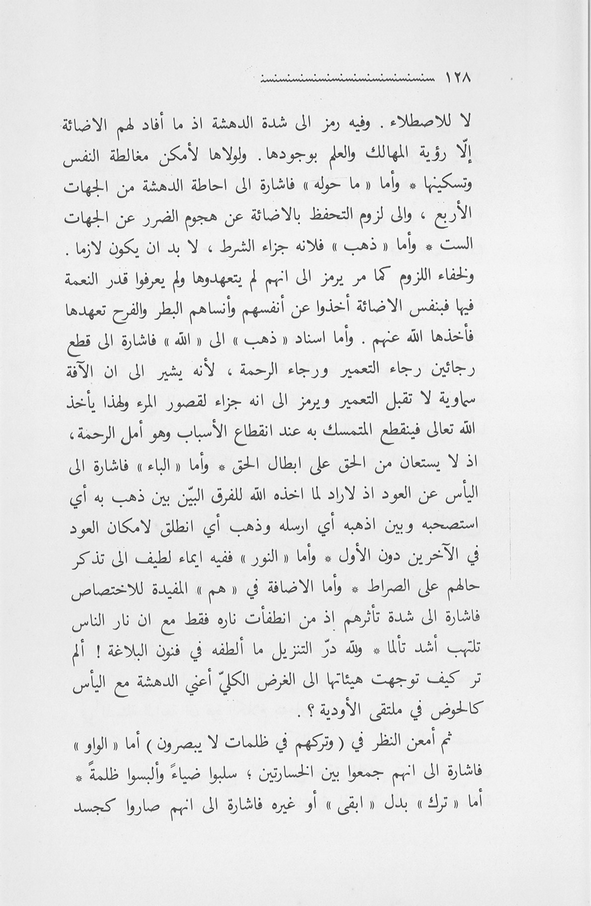 ١٢٨
لا للاصطلاء . وفيه رمز الى شدة الدهشة اذ ما أفاد لهم الاضائة
إلّا رؤية المهالك والعلم بوجودها. ولولاها لأمكن مغالطة النفس
وتسكينها * وأما « ما حوله » فاشارة الى احاطة الدهشة من الجهات
الأربع ، والى لزوم التحفظ بالاضائة عن هجوم الضرر عن الجهات
الست * وأما « ذهب » فلانه جزاء الشرط ، لا بد ان يكون لازما .
ولخفاء اللزوم كما مر يرمز الى انهم لم يتعهدوها ولم يعرفوا قدر النعمة
فيها فبنفس الاضائة أخذوا عن أنفسهم وأنساهم البطر والفرح تعهدها
فأخذها الله عنهم . وأما اسناد « ذهب » الى « الله » فاشارة الى قطع
رجائين رجاء التعمير ورجاء الرحمة ، لأنه يشير الى ان الآفة
سماوية لا تقبل التعمير ويرمز الى انه جزاء لقصور المرء ولهذا يأخذ
الله تعالى فينقطع المتمسك به عند انقطاع الأسباب وهو أمل الرحمة ،
اذ لا يستعان من الحق على ابطال الحق * وأما « الباء » فاشارة الى
اليأس عن العود اذ لاراد لما اخذه الله للفرق البيّن بين ذهب به أي
استصحبه وبين اذهبه أي ارسله وذهب أي انطلق لامكان العود
في الآخرين دون الأول * وأما « النور » ففيه ايماء لطيف الى تذكر
حالهم على الصراط * وأما الاضافة في « هم » المفيدة للاختصاص
فاشارة الى شدة تأثرهم إذ من انطفأت ناره فقط مع ان نار الناس
تلتهب أشد تألما * ولله درّ التنزيل ما ألطفه في فنون البلاغة ! ألم
تر كيف توجهت هيئاتها الى الغرض الكليّ أعني الدهشة مع اليأس
كالحوض في ملتقى الأودية ؟ .
ثم أمعن النظر في ( وتركهم في ظلمات لا يبصرون ) أما « الواو »
فاشارة الى انهم جمعوا بين الخسارتين ؛ سلبوا ضياءً وألبسوا ظلمةً *
أما « ترك » بدل « ابقى » أو غيره فاشارة الى انهم صاروا كجسد